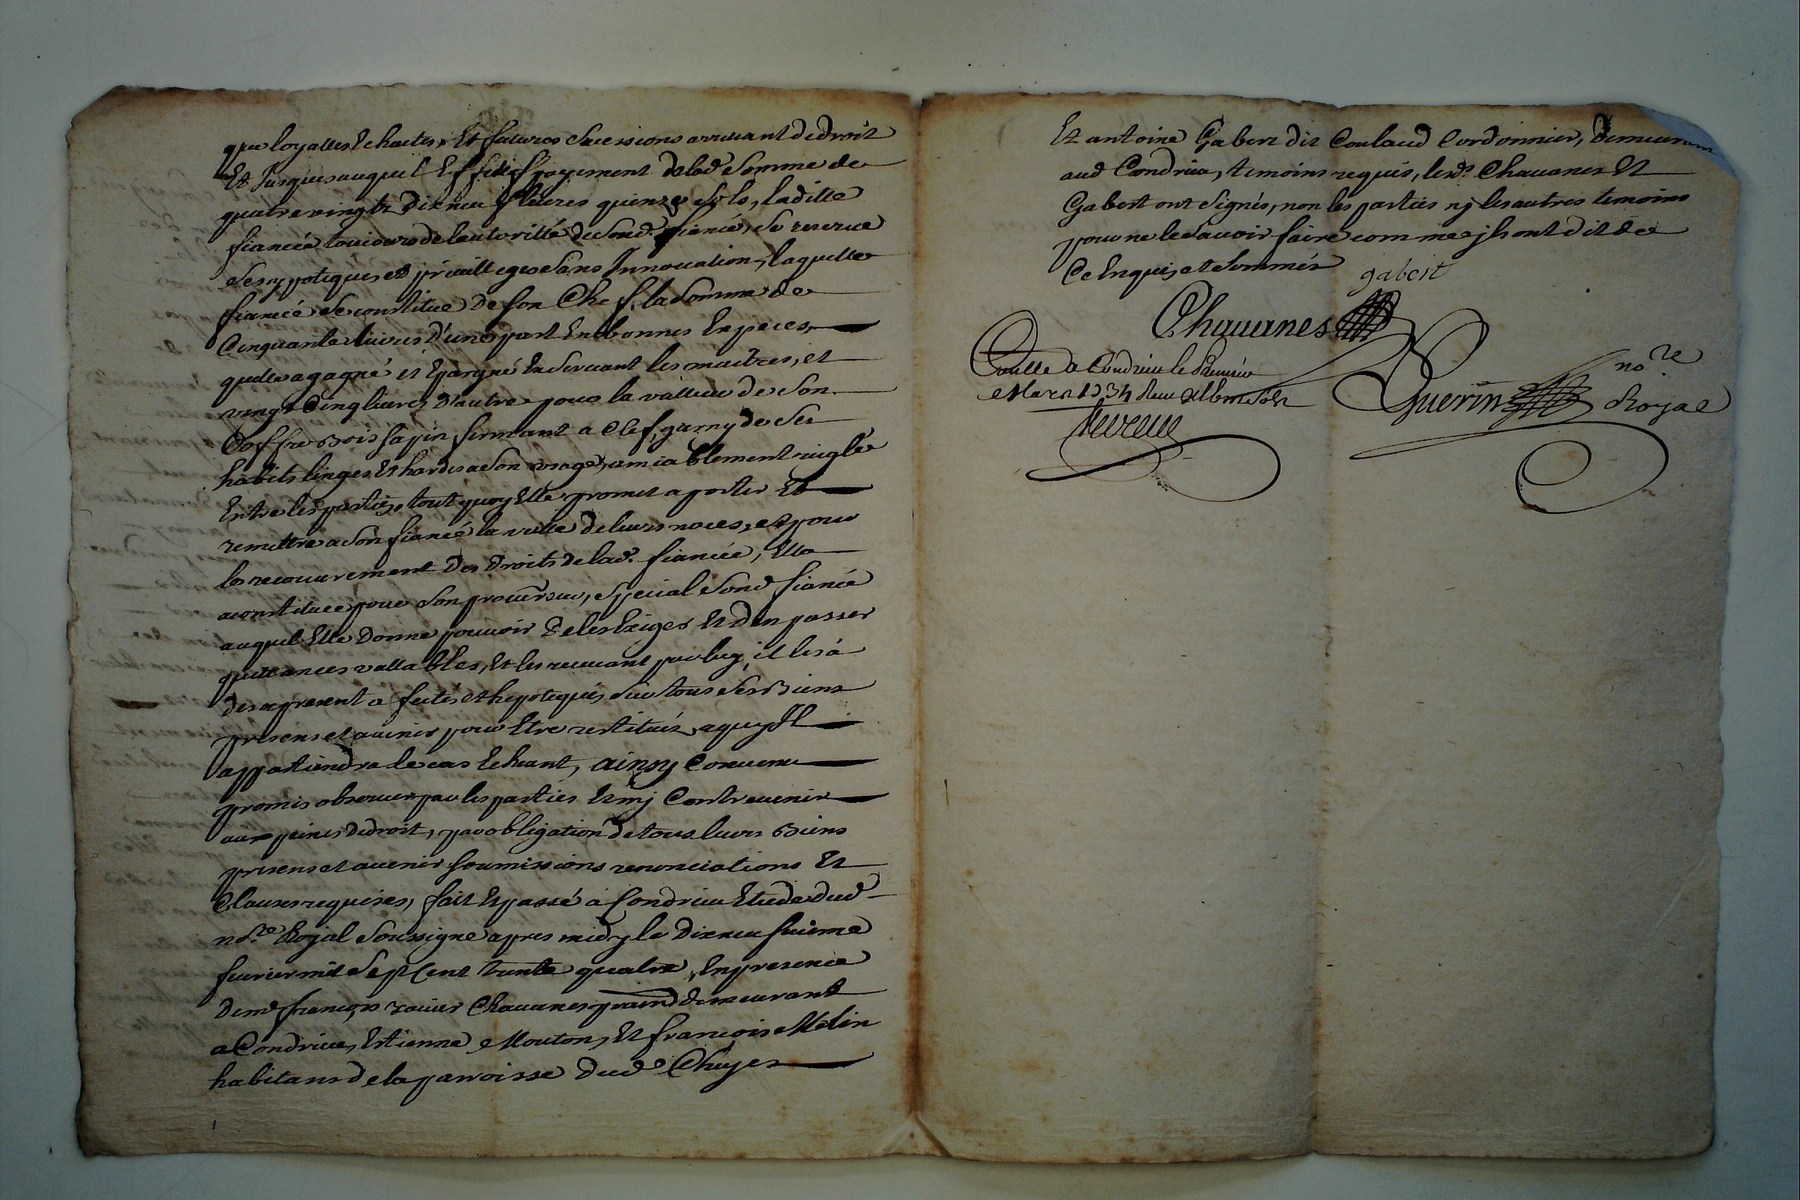 que loyalles Echaites, Et futures sucessions arrivant de droit
Et Jusques auquel Effetif payement de lad. somme de
quatre vingt dixneuf livres quinze sols, laditte
fiancée toujours de lautoritté de sond. fiancé, se reserve
ses ypotiques et privilleges sans Innovation, laquelle
fiancée se constitue de son Chef, la somme de
Cinquante livres d'une part En bonnes Especes
quelle a gagné et Epargné En servant les maitres, et
vingt Cinq livres d'autre pour la valleur de son
Coffre bois sapin fermant a Clef, garny de ses
habits linges Et hardes a son usage, amiablement reiglé
Entre les parties, tout quoy Elle promet aporter Et
remettre a son fiancé la veille de leurs noces, et pour
le recouvrement des droits de lad. fiancée, Elle
a constitué pour son procureur, special sond. fiancé
auquel Elle donne pouvoir de les Exiger Et d'en passer
quittances vallables, Et les recevant par luy, il les a
des apresent afectés et hypotequés sur tous ses biens
presens et avenir pour Etre restitués, a quy Il
appartiendra le cas Echeant, ainsy Convenu
promis observer par les parties Et nj Contrevenir
aux peines de droit, par obligation de tous leurs biens
presens et avenir soumissions renonciations Et
Clauses requises, fait Et passé a Condrieu Etude dud.
no.re Royal soussigné apres midy le dixneufvieme
fevrier mil sept Cent trente quatre, En presence
de me. françois Chavanes demeurant
a Condrieu, Estienne Mouton, Et françois Melin
habitans de la parroisse dud. Chuyes
Et antoine Gabert dit Coulaud Cordonnier, demeurant
aud. Condrieu, temoins requis, lesd. Chavanes Et
Gabert ont signés, non les parties nj les autres temoins
pour ne le savoir faire comme jls ont dit de
Ce Enquis et sommés
gabert
Chauanes
Conllé a Condrieu le premier
Mars 1734 Reçu sols
Guerin no.re
Royal